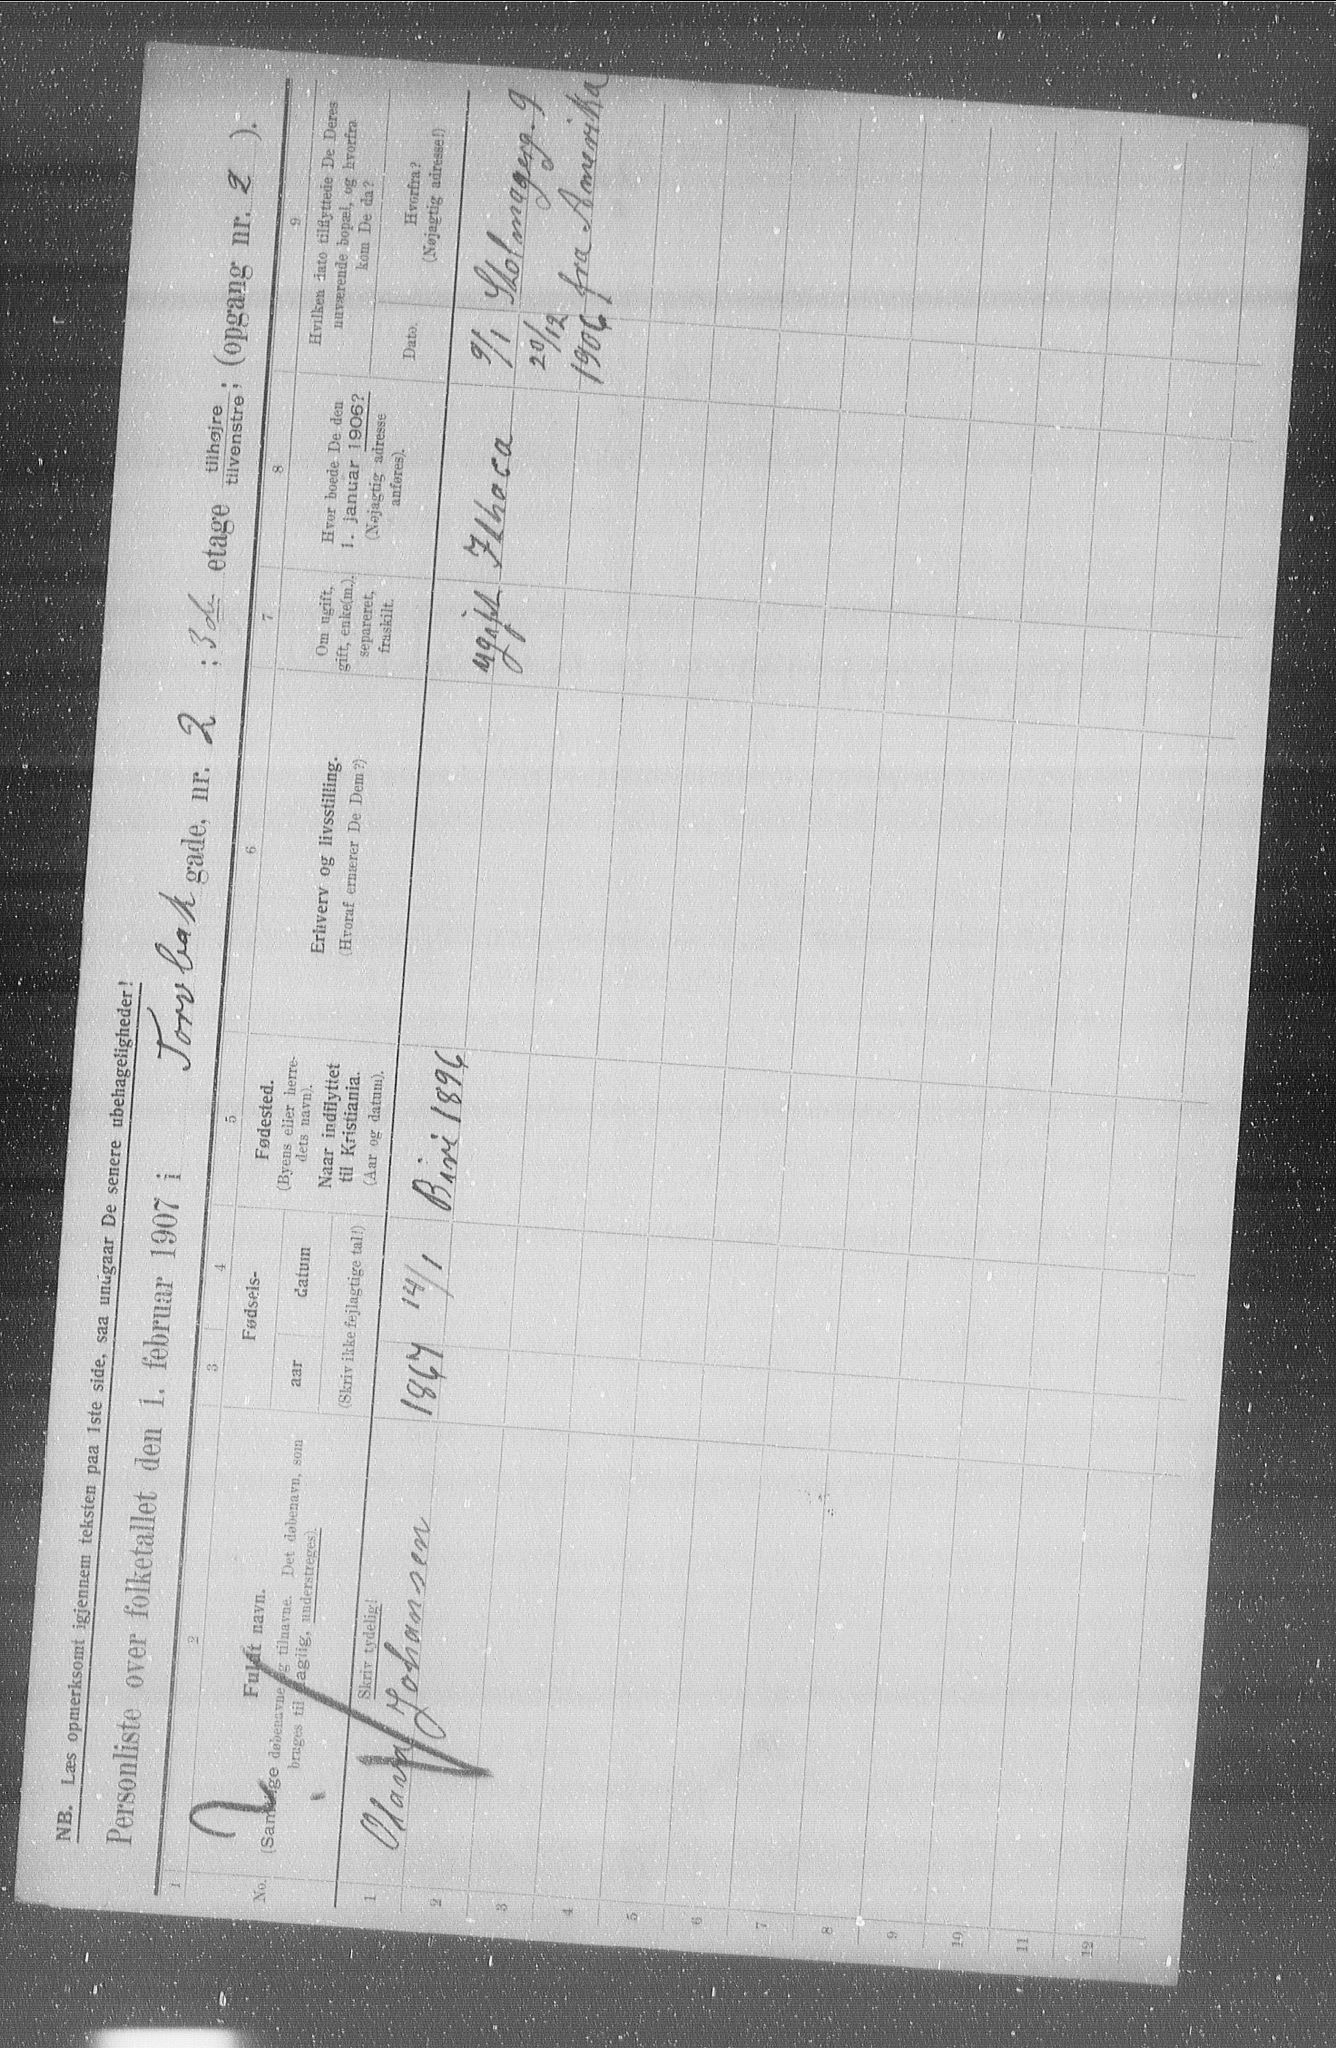 NB. Læs opmerksomt igjennem teksten paa 1ste side, saa undgaar De senere ubehageligheder!
Personliste over folketallet den 1. februar 1907 i Torvbakgade, nr. 2 ; 3de etage tilhøjre tilvenstre; (opgang nr. 2 ).
1 2 3 4 5 6 7 8 9
No.
Fuldt navn.
(Samtlige døbenavne og tilnavne. Det døbenavn, som
bruges til daglig, understreges).
Skriv tydelig!
Fødsels-
aar datum
(Skriv ikke fejlagtige tal!)
Fødested.
(Byens eller herre-
dets navn).
Naar indflyttet
til Kristiania.
(Aar og datum).
Erhverv og livsstilling.
(Hvoraf ernærer De Dem?)
Om ugift,
gift, enke(m.),
separeret,
fraskilt.
Hvor boede De den
1. januar 1906?
(Nøjagtig adresse
anføres).
Hvilken dato tilflyttede De Deres
nuværende bopæl, og hvorfra
kom De da?
Dato.
Hvorfra?
(Nøjagtig adresse!)
1 Olava Johansen 1867 14/1 Biri 1896 ugift 9/1 Skolmagerg. 9
2 20/12
1906 fra Amerika
3
4
5
6
7
8
9
10
11
12